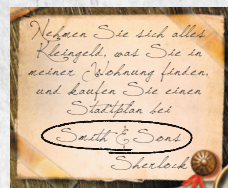 Nehmen Sie sich alles
Kleingeld, was Sie in
meiner Wohnung finden,
und kaufen Sie einen
Stadtplan bei
Smith & Sons
Sherlock